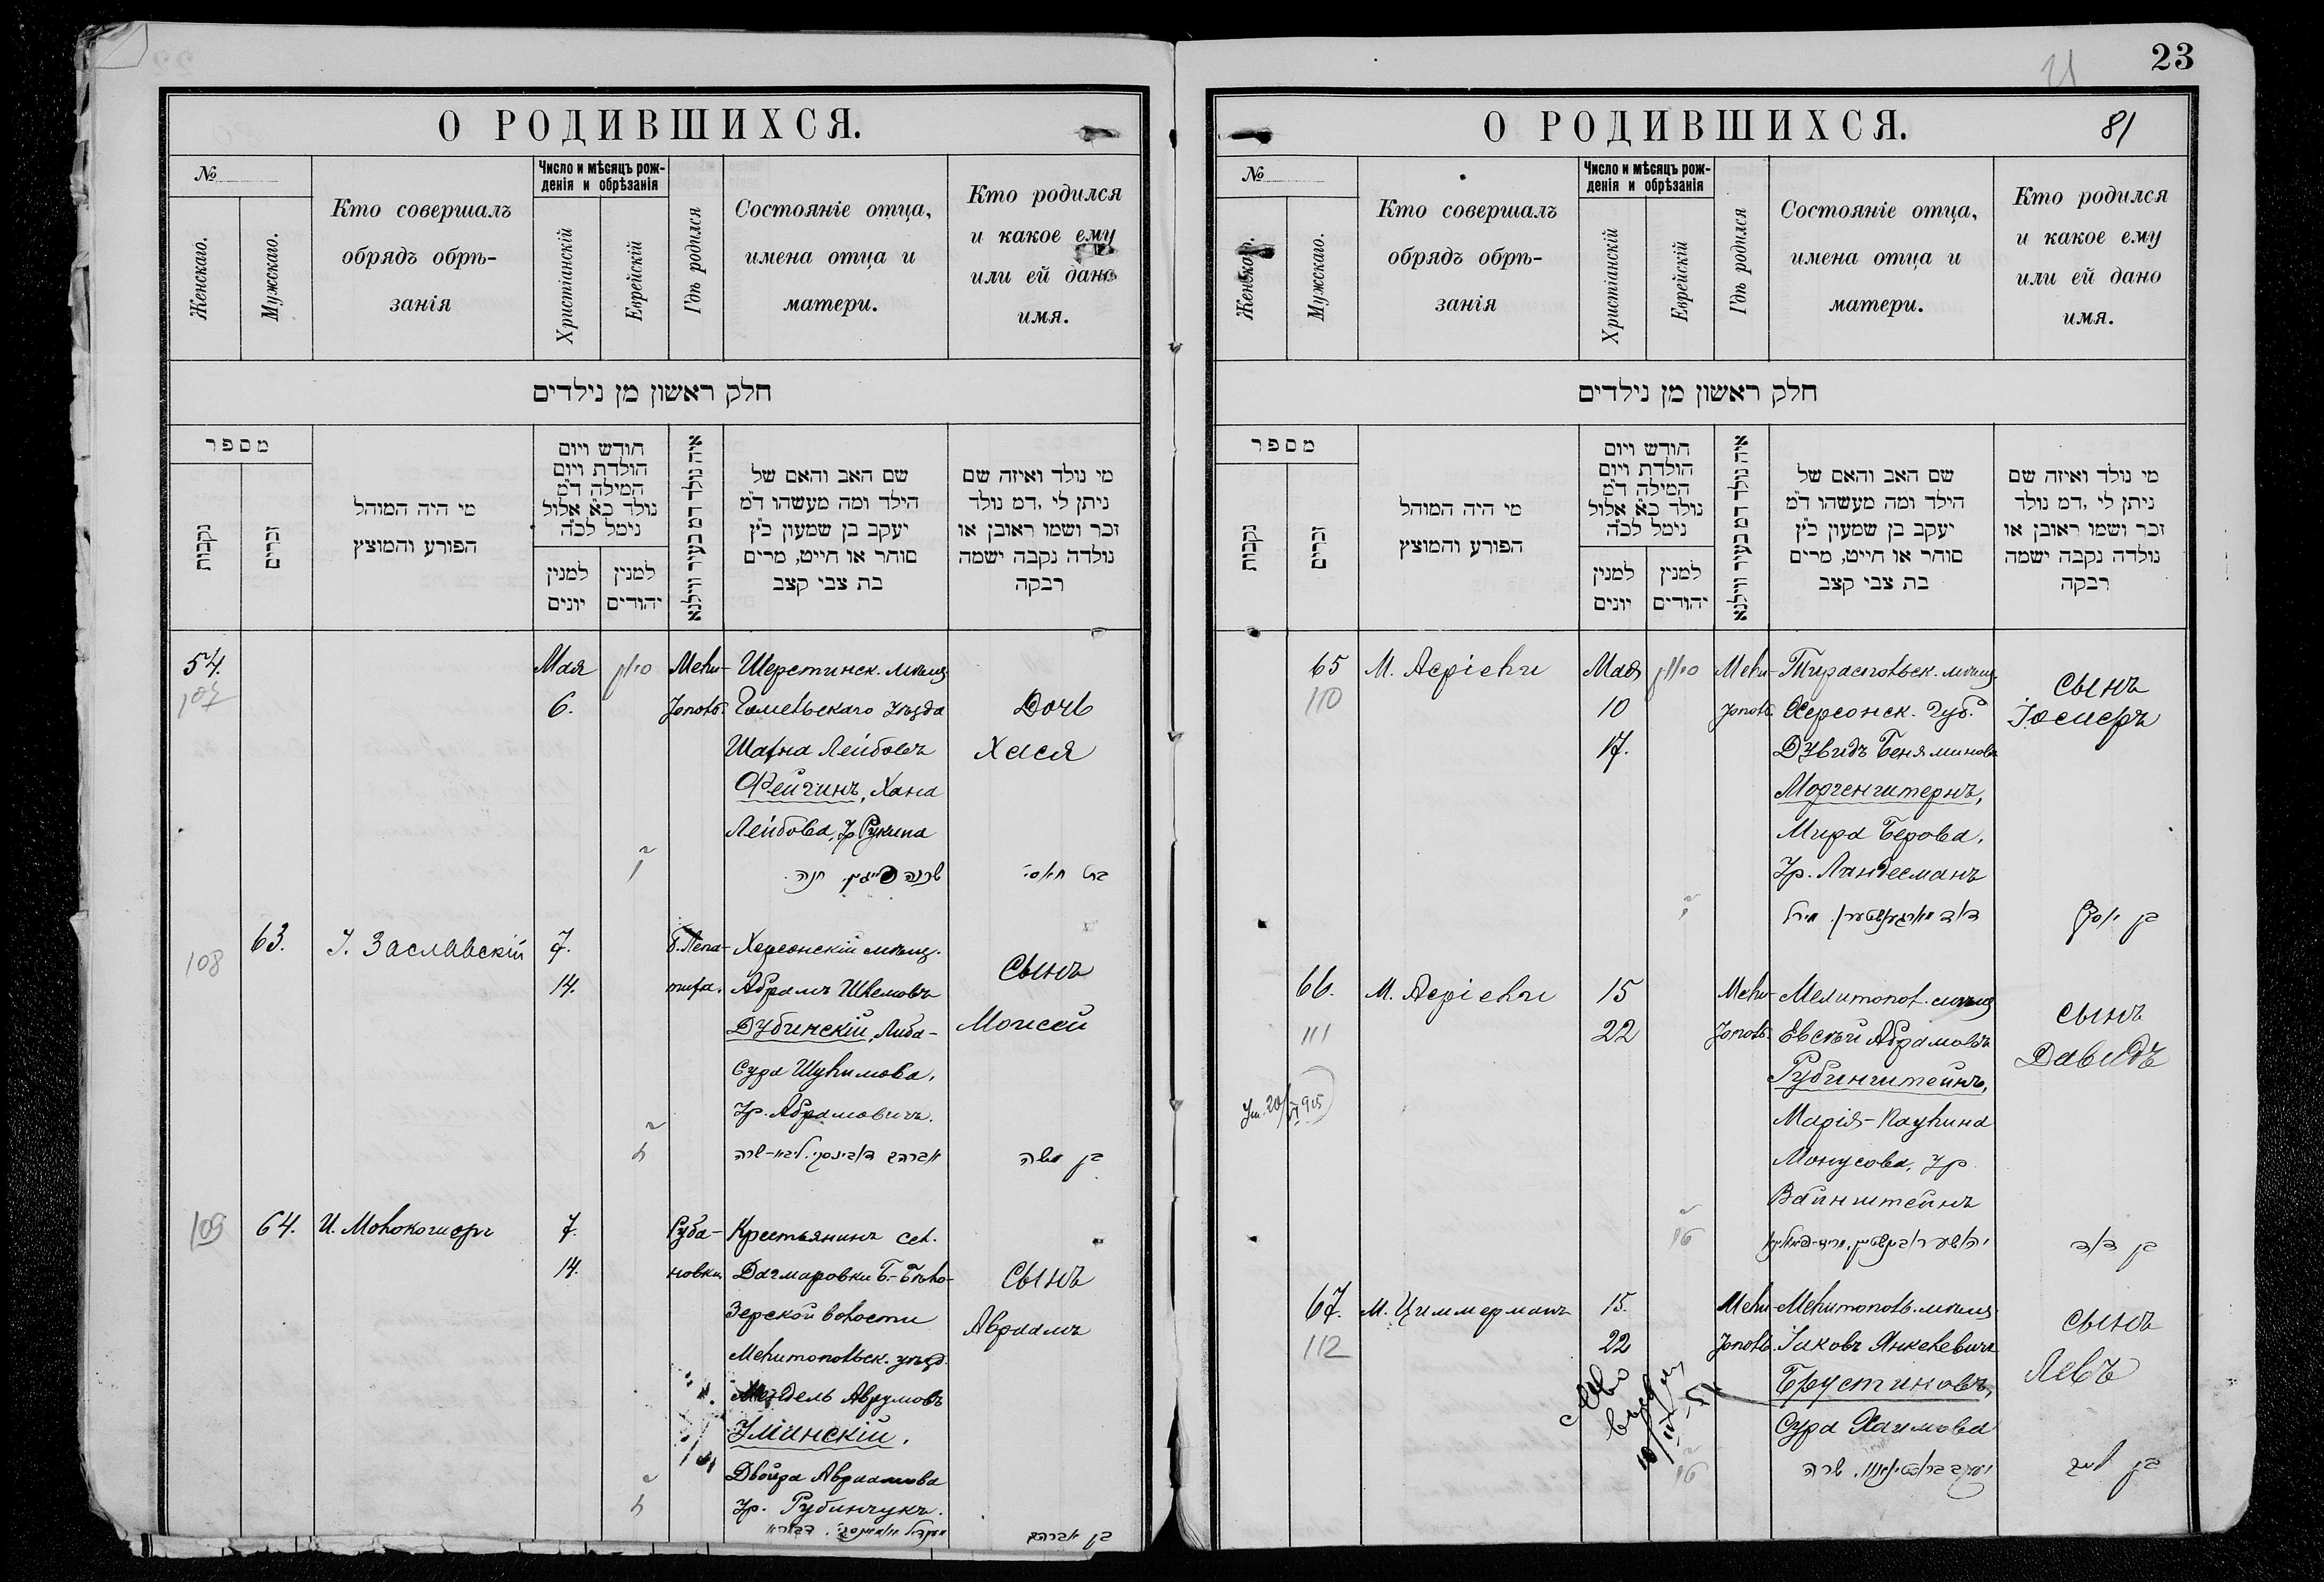 23
О РОДИВШИХСЯ.
№
Женскаго.
Мужскаго.
Кто совершалъ
обрядъ обрѣ-
занія
Число и мѣсяцъ рож-
денія и обрѣзанія
Христіанскій
Еврейскій
Гдѣ родился
Состояніе отца,
имена отца и
матери.
Кто родился
и какое ему
или ей дано
имя.
חלק ראשון מן נילדים
מספר
נקבות
זכרים
מי היה המוהל
הפורע והמוצץ
חודש ויום
הולדת ויום
המילה ד"מ
נולד כ"א אלול
נימל לכ"ה
למנין
יונים
למנין
יהודים
איה נולד דמ בעיר ווילנא
שם האב והאם של
הילד ומה מעשהו ד"מ
יעקב בן שמעון כ"ץ
סוחר או חייט, מרים
בת צבי קצב
מי נולד ואיזה שם
ניתן לי ,דמ נולד
זכר ושמו ראובן או
נולדה נקבה ישמה
רבקה
54.
107
Мая
6.
סיון
Мели-
тополь.
Шерстинск. мѣщ.
Гомельскаго уѣзда
Шавна Лейбовъ
Фейгинъ, Хана
Лейбова, ур. Рукина
חנה
Дочь
Хася
בת חאסי
63.
108
І. Заславскій
7.
14.
Б. Лепа-
тиха.
Херсонскій мѣщ.
Абрамъ Шлемовъ
Дубинскій, Либа-
Сура Шулимова,
ур. Абрамовичъ.
אברהם דובינסקי. ליבא-שרה
Сынъ
Моисей
בן משה
64.
109
И. Молокошеръ
7.
14.
Руба-
новка.
Крестьянинъ сел.
Дагмаровки Б.-Бѣло-
зерской волости
Мелитопольск. уѣзд.
Мендель Аврумовъ
Уминскій.
Двойра Авраамова
ур. Рубинчукъ.
Сынъ
Авраамъ
בן אברהם
О РОДИВШИХСЯ.
81
№
Женскаго.
Мужскаго.
Кто совершалъ
обрядъ обрѣ-
занія
Число и мѣсяцъ рож-
денія и обрѣзанія
Христіанскій
Еврейскій
Гдѣ родился
Состояніе отца,
имена отца и
матери.
Кто родился
и какое ему
или ей дано
имя.
חלק ראשון מן נילדים
מספר
נקבות
זכרים
מי היה המוהל
הפורע והמוצץ
חודש ויום
הולדת ויום
המילה ד"מ
נולד כ"א אלול
נימל לכ"ה
למנין
יונים
למנין
יהודים
איה נולד דמ בעיר ווילנא
שם האב והאם של
הילד ומה מעשהו ד"מ
יעקב בן שמעון כ"ץ
סוחר או חייט, מרים
בת צבי קצב
מי נולד ואיזה שם
ניתן לי ,דמ נולד
זכר ושמו ראובן או
נולדה נקבה ישמה
רבקה
65
110
М. Асріели
Мая
10
17.
סיון
Мели-
тополь.
Тираспольск. мѣщ.
Херсонск. Губ.
Дувидъ Беняминовъ
Моргенштернъ,
Мира Берова,
ур. Ландесманъ
דוד מארגענשטערן. מירל
Сынъ
Іосифъ
בן יוסף
66.
111
Ум. 20/VI 915
М. Асріели
15
22
Мели-
тополь.
Мелитопол. мѣщ.
Евсѣй Абрамовъ
Рубинштейнъ,
Марія-Паулина
Монусова, ур.
Вайнштейнъ
Сынъ
Давидъ
בן דוד
67.
112
М. Циммерманъ
15.
22
Мели-
тополь.
Мелитополь. мѣщ.
Іаковъ Янкелевичъ
Брустиновъ,
Сура Хаимова
שרה
Сынъ
Левъ
בן